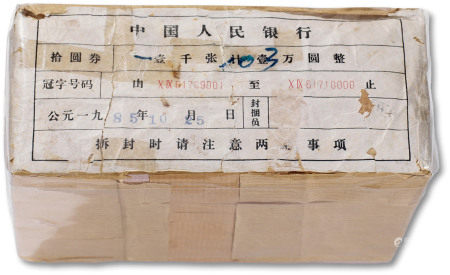 中国人民银行
拾圆券 壹千张 计壹万圆整
冠字号码 由 XⅨ61709001 至 XⅨ61710000 止
公元一九85年10月25日 封捆员
拆封时请注意两 事项